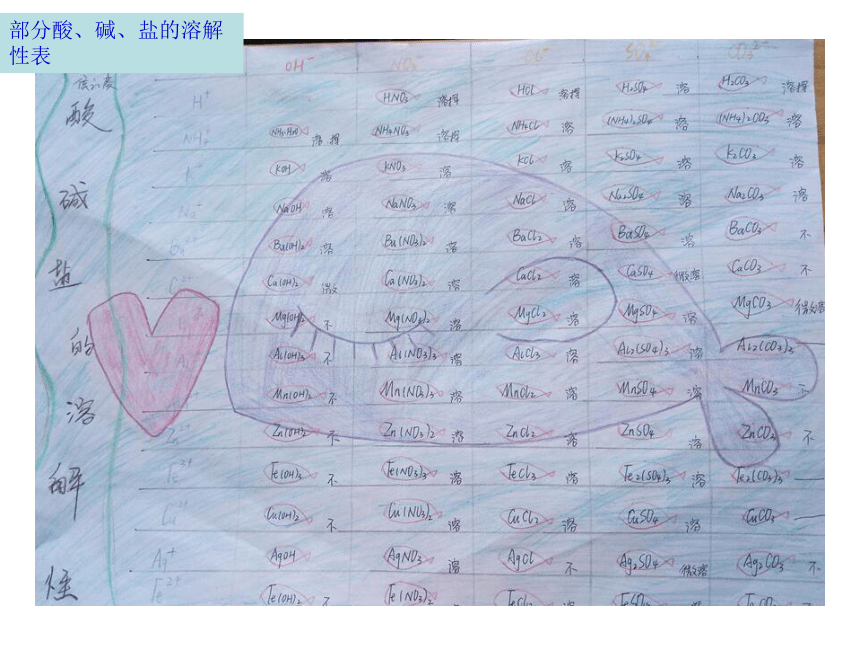 部分酸、碱、盐的溶解
性表
酸碱盐的溶解性
OH⁻ NO₃⁻ Cl⁻ SO₄²⁻ CO₃²⁻
H⁺ HNO₃ 溶挥 HCl 溶挥 H₂SO₄ 溶 H₂CO₃ 溶挥
NH₄⁺ NH₃·H₂O 溶挥 NH₄NO₃ 溶挥 NH₄Cl 溶 (NH₄)₂SO₄ 溶 (NH₄)₂CO₃ 溶
K⁺ KOH 溶 KNO₃ 溶 KCl 溶 K₂SO₄ 溶 K₂CO₃ 溶
Na⁺ NaOH 溶 NaNO₃ 溶 NaCl 溶 Na₂SO₄ 溶 Na₂CO₃ 溶
Ba²⁺ Ba(OH)₂ 溶 Ba(NO₃)₂ 溶 BaCl₂ 溶 BaSO₄ 溶 BaCO₃ 不
Ca(OH)₂ 微 Ca(NO₃)₂ 溶 CaCl₂ 溶 CaSO₄ 微溶 CaCO₃ 不
Mg(OH)₂ 不 Mg(NO₃)₂ 溶 MgCl₂ 溶 MgSO₄ 溶 MgCO₃ 微溶
Al(OH)₃ 不 Al(NO₃)₃ 溶 AlCl₃ 溶 Al₂(SO₄)₃ 溶 Al₂(CO₃)₃ —
Mn(OH)₂ 不 Mn(NO₃)₂ 溶 MnCl₂ 溶 MnSO₄ 溶 MnCO₃
Zn²⁺ Zn(OH)₂ 不 Zn(NO₃)₂ 溶 ZnCl₂ 溶 ZnSO₄ 溶 ZnCO₃ 不
Fe³⁺ Fe(OH)₃ 不 Fe(NO₃)₃ 溶 FeCl₃ 溶 Fe₂(SO₄)₃ 溶 Fe₂(CO₃)₃ —
Cu²⁺ Cu(OH)₂ 不 Cu(NO₃)₂ 溶 CuCl₂ 溶 CuSO₄ 溶 CuCO₃ —
Ag⁺ AgOH — AgNO₃ 溶 AgCl 不 Ag₂SO₄ 微溶 Ag₂CO₃ 不
Fe²⁺ Fe(OH)₂ 不 Fe(NO₃)₂ FeCl₂ 溶 FeSO₄ FeCO₃